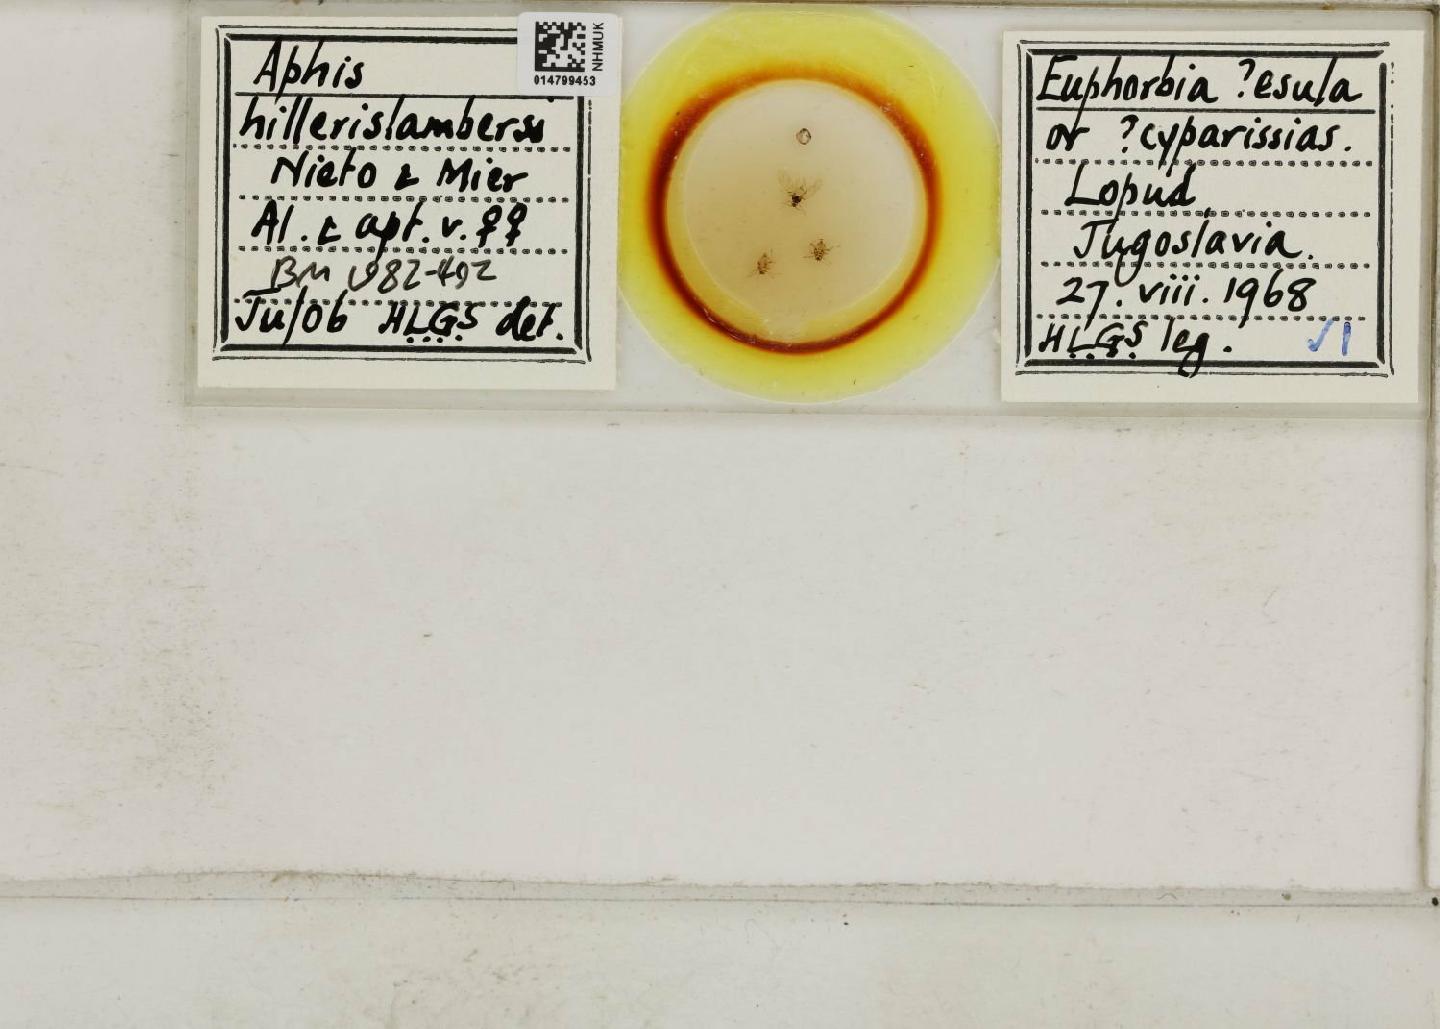 Aphis
hillerislambersi
Nieto & Mier
Al. & apt. v. ♀♀
BM 1982-492
Ju/06 HLGS det.
NHMUK
014799453
Euphorbia ?esula
or ?cyparissias.
Lopud,
Jugoslavia.
27. viii. 1968
HLGS leg.
√1